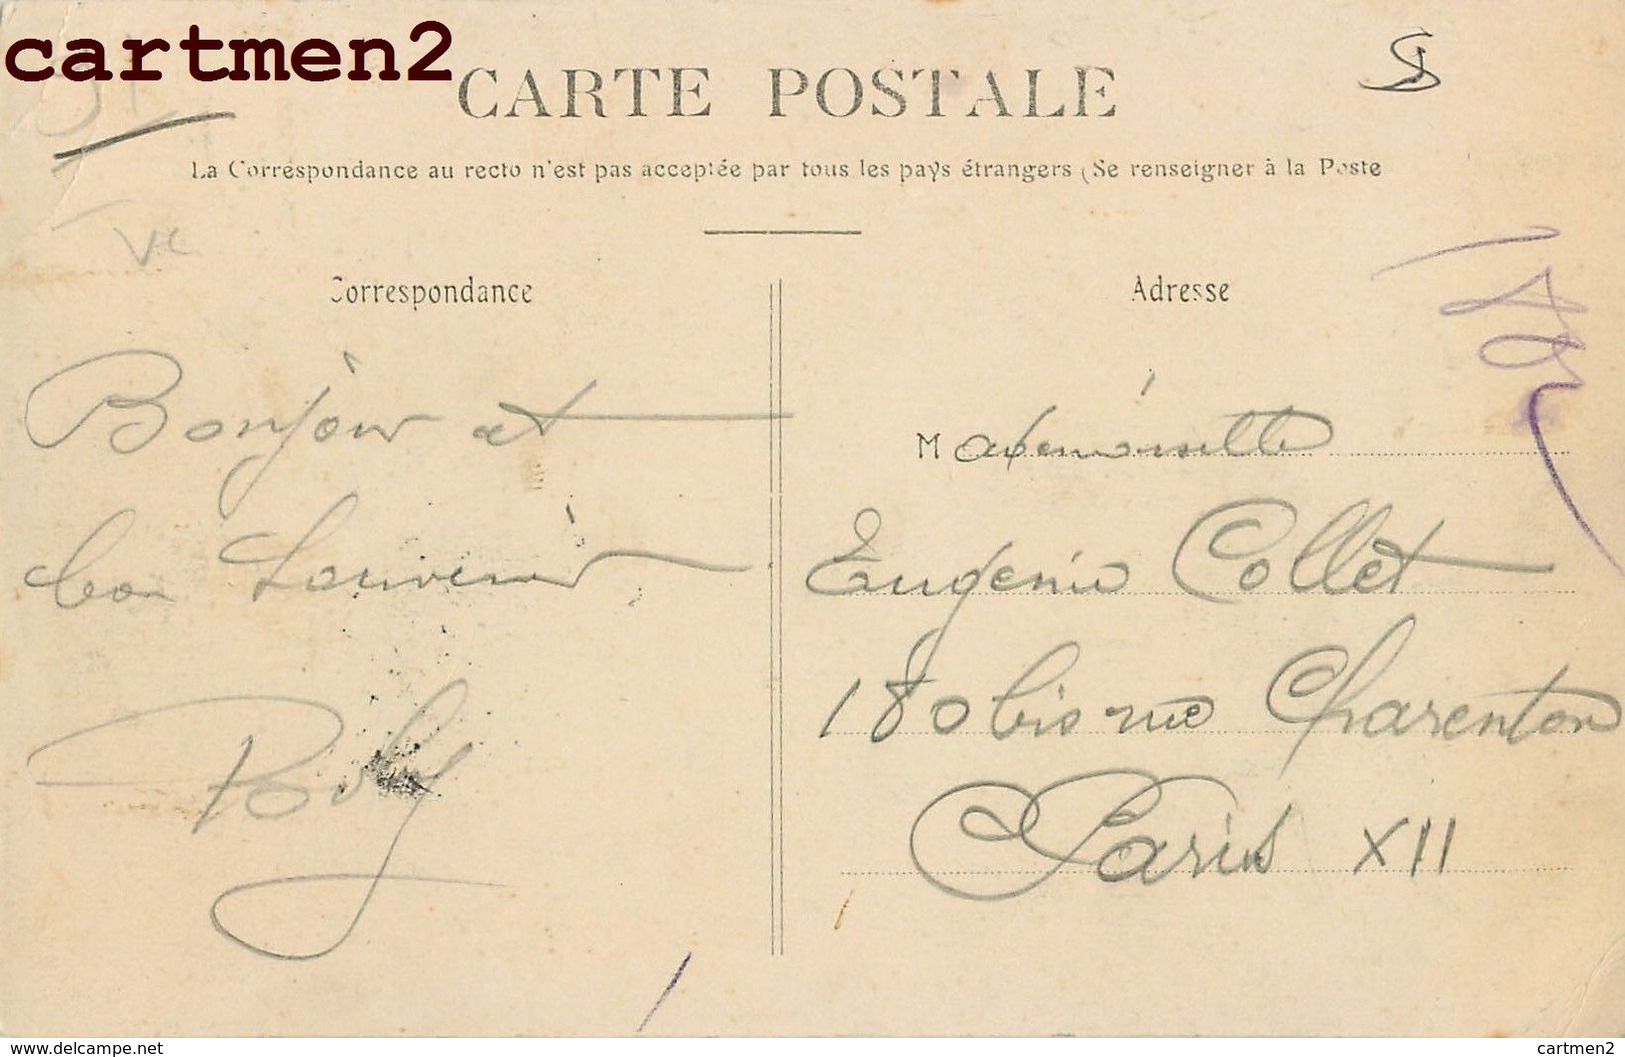 cartmen2
CARTE POSTALE
La Correspondance au recto n'est pas acceptée par tous les pays étrangers (Se renseigner à la Poste
Correspondance
Bonjour et
bon Souvenir
Adresse
Mademoiselle
Eugenie Collet
180 bis rue Charenton
Paris XII
www.delcampe.net
cartmen2